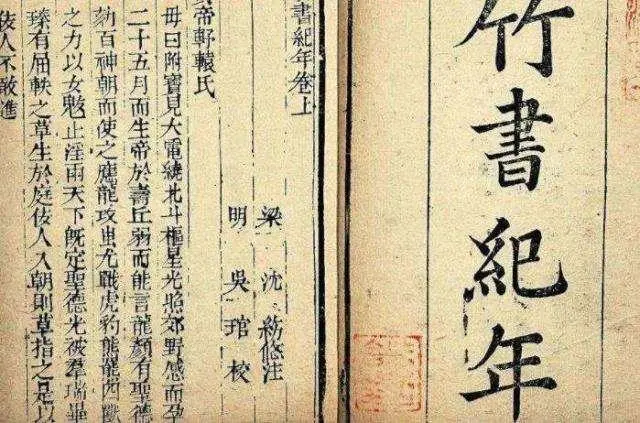 竹書紀年
書紀年卷上
梁 沈 約 注
明 吳 琯 校
帝軒轅氏
母曰附寶見大電繞北斗樞星光照郊野感而孕
二十五月而生帝於壽丘弱而能言龍顏有聖德
劾百神朝而使之應龍攻蚩尤戰虎豹熊羆四獸
之力以女魃止淫雨天下既定聖德光被羣瑞畢
臻有屈軼之草生於庭佞人入朝則草指之是以
佞人不敢進